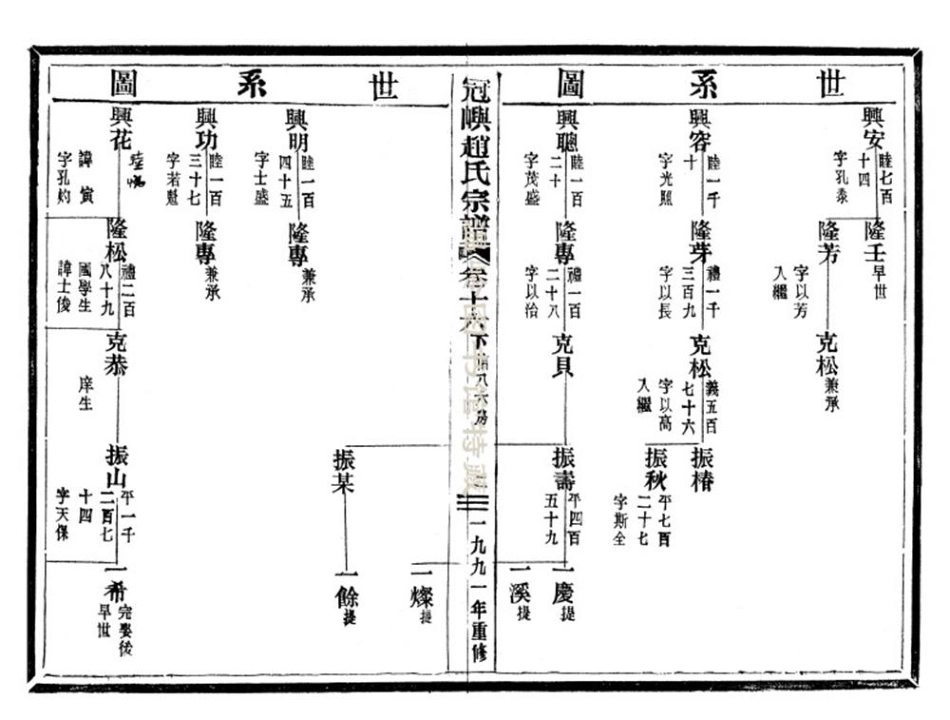 世系圖
興安
陸七百
十四
字孔彔
隆壬
早世
隆芳
字以芳
入繼
克松
兼承
興容
陸一千
十
字光照
隆芽
禮一千
三百九
字以長
克松
義五百
七十六
字以高
入繼
振椿
振秋
平七百
二十七
字斯全
興聰
陸一百
二十
字茂盛
隆專
禮一百
二十八
字以治
克貝
振壽
平四百
五十九
一慶
提
一溪
提
冠嶼趙氏宗譜
卷十六下
一九九一年重修
世系圖
一燦
提
振某
一餘
提
興明
陸一百
四十五
字士盛
隆專
兼承
興功
陸一百
三十七
字若魁
隆專
兼承
興花
諱寅
字孔灼
隆松
禮二百
八十九
國學生
諱士俊
克恭
庠生
振山
平一千
二百七
十四
字天保
一希
完娶後
早世